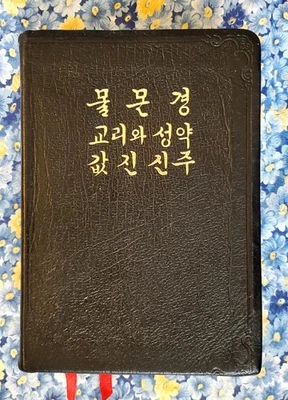 몰몬경
교리와 성약
값진 진주